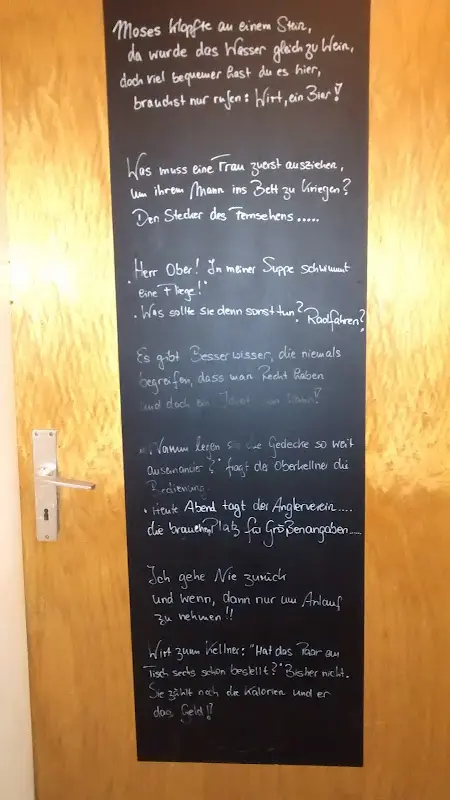 Moses klopfte an einem Stein,
da wurde das Wasser gleich zu Wein,
doch viel bequemer hast du es hier,
brauchst nur rufen: Wirt, ein Bier!
Was muss eine Frau zuerst ausziehen,
um ihrem Mann ins Bett zu kriegen?
Den Stecker des Fernsehers.....
"Herr Ober! In meiner Suppe schwimmt
eine Fliege!"
. Was sollte sie denn sonst tun? Radfahren?
Es gibt Besserwisser, die niemals
begreifen, dass man Recht haben
und doch ein Idiot sein kann!
"Warum legen sie die Gedecke so weit
auseinander?" fragt der Oberkellner die
Bedienung.
. Heute Abend tagt der Anglerverein....
die brauchen Platz für Größenangaben....
Ich gehe Nie zurück
und wenn, dann nur um Anlauf
zu nehmen!!
Wirt zum Kellner: "Hat das Paar am
Tisch sechs schon bestellt?" Bisher nicht.
Sie zählt noch die Kalorien und er
das Geld!!